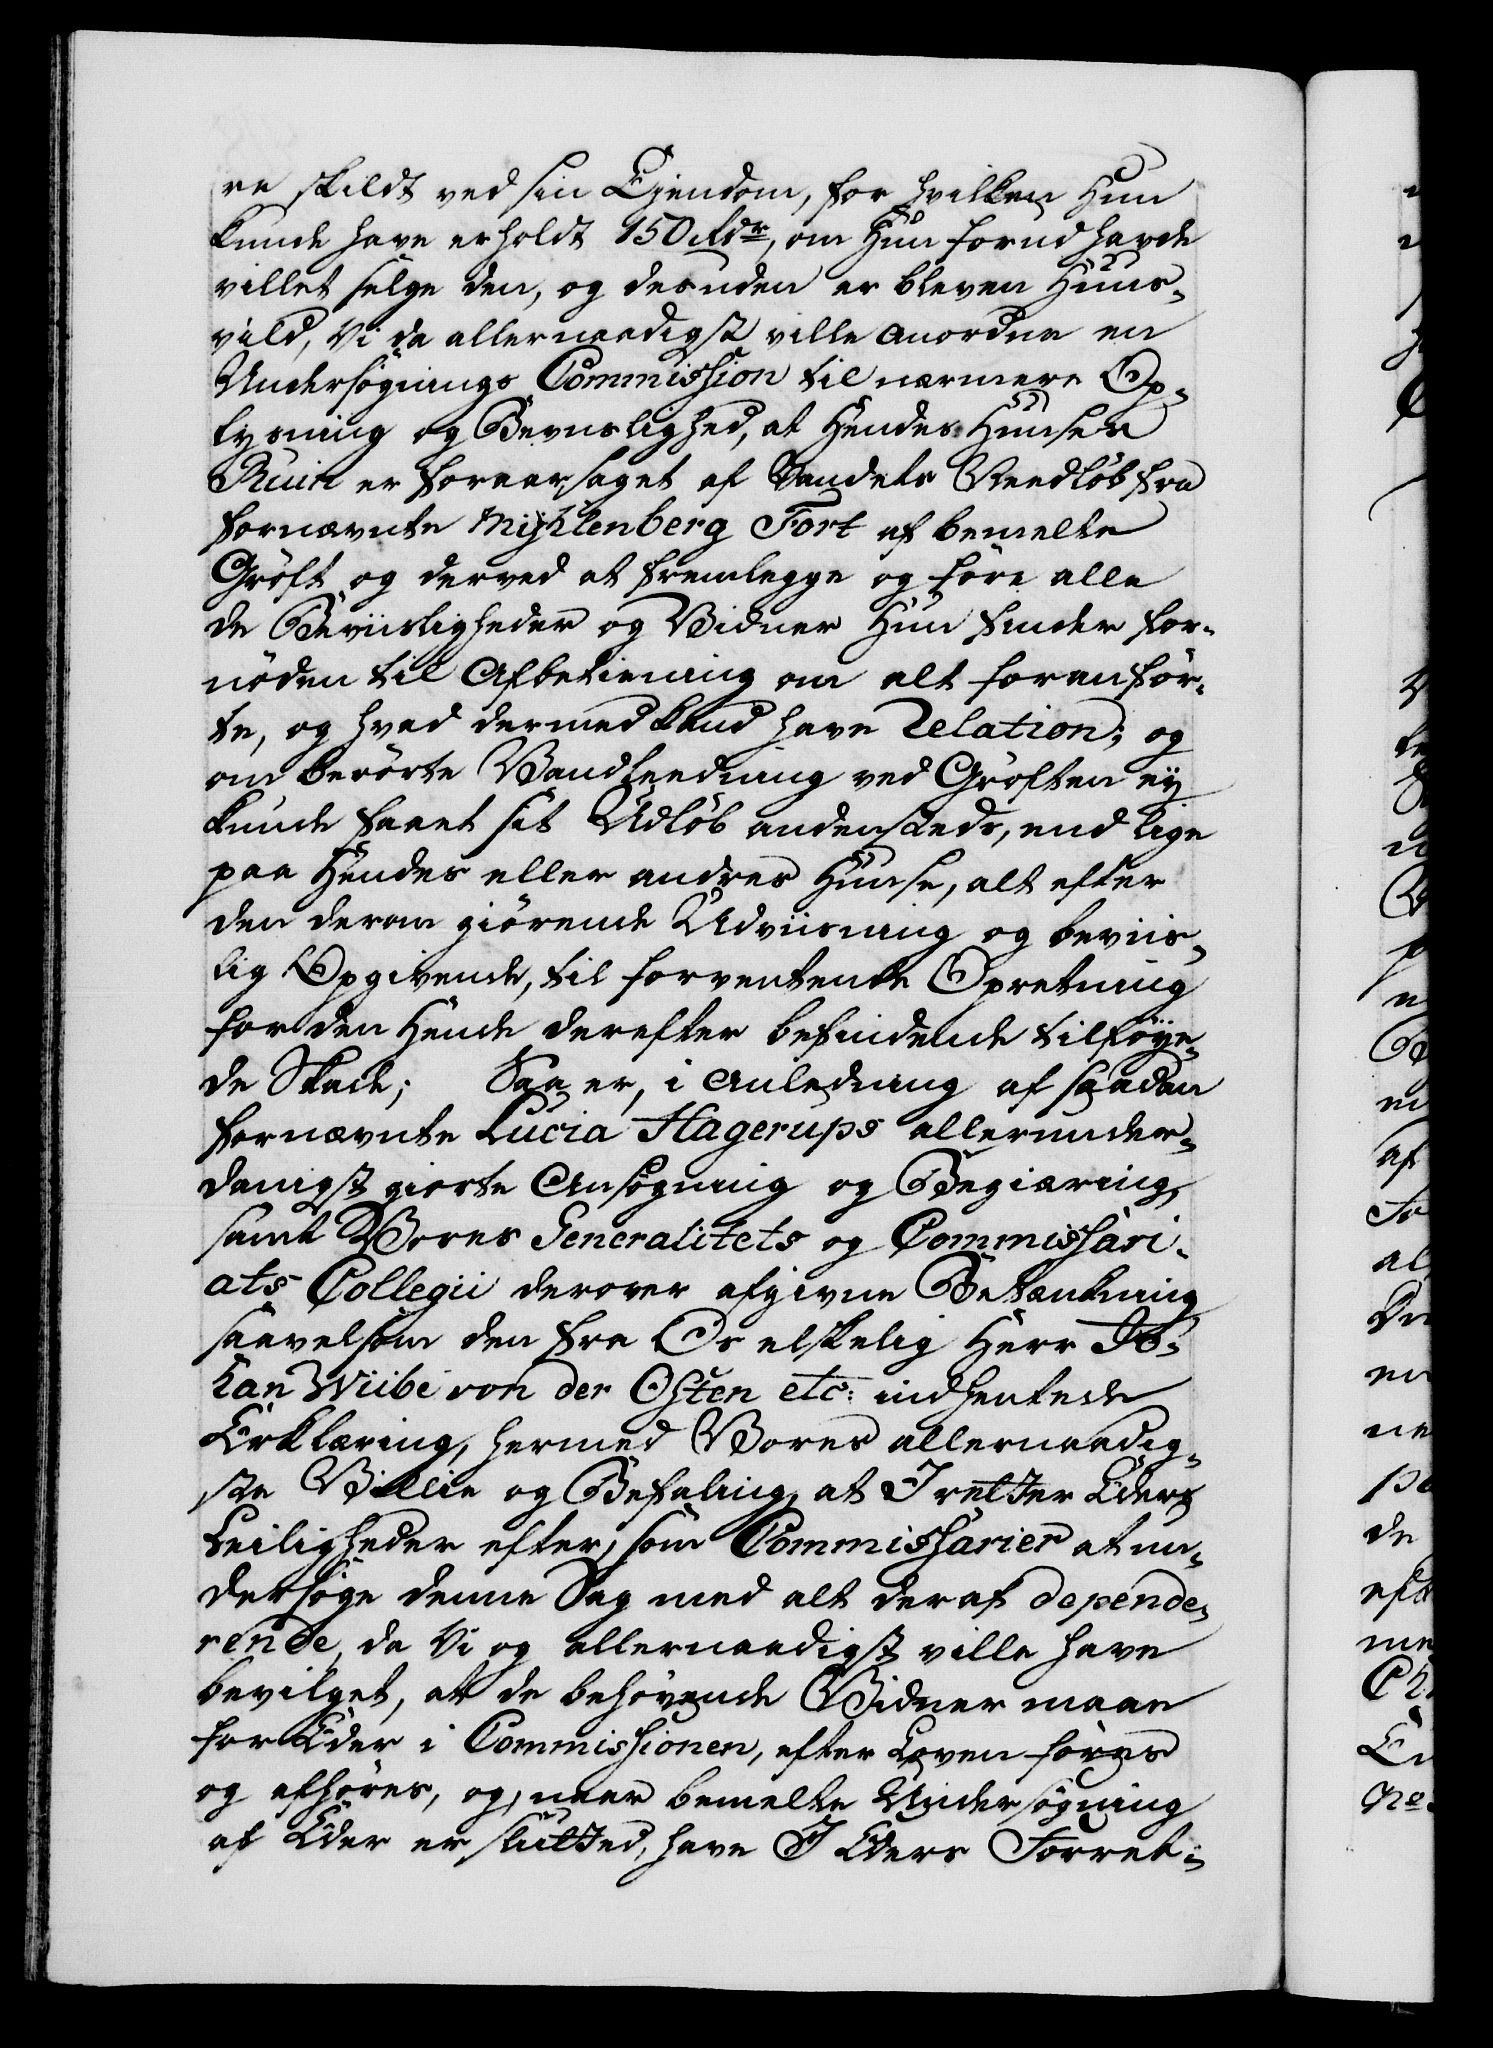 re skildt ved sin Ejendom, for hvilken Hun
kunde have erholdt 150 Rdr, om Hun forud havde
villet selge den, og desuden er bleven Huus-
vild, Vi da allernaadigst ville anordne en
Undersøgnings Commission til nærmere Op-
lysning og Beviislighed, at Hendes Huuses
Ruin er foraarsaget af Vandets Needløb fra
fornævnte Myhlenberg Fort af bemelte
Grøft, og derved at fremlegge og føre alle
de Beviisligheder og Vidner Hun finder for-
nøden til Afbetiening om alt foranfør-
te, og hvad dermed kand have Relation; og
om berørte Vandleedning ved Grøften ey
kunde faaet sit Udløb andensteds, end lige
paa Hendes eller andres Huuse, alt efter
den derom giørende Udviisning og beviis-
lig Opgivende, til forventende Opretning
for den Hende derefter befindende tilføye-
de Skade; Saa er, i Anledning af saadan
fornævnte Lucia Hagerups allerunder-
danigst giorte Ansøgning og Begiæring,
samt Vores Generalitets og Commissari-
ats Collegii derover afgivne Betænkning
saavelsom den fra Os elskelig Herr Jo-
han Wiibe von der Osten etc: indhentede
Erklæring, hermed Vores allernaadig-
ste Villie og Befaling, at I retter Eders
Leiligheder efter, som Commissarier at un-
dersøge denne Sag med alt deraf depende-
rende, da Vi og allernaadigst ville have
bevilget, at de behøvende Vidner maae
for Eder i Commissionen, efter Loven føres
og afhøres, og, naar bemelte Undersøgning
af Eder er slutted, have I Eders Forret-